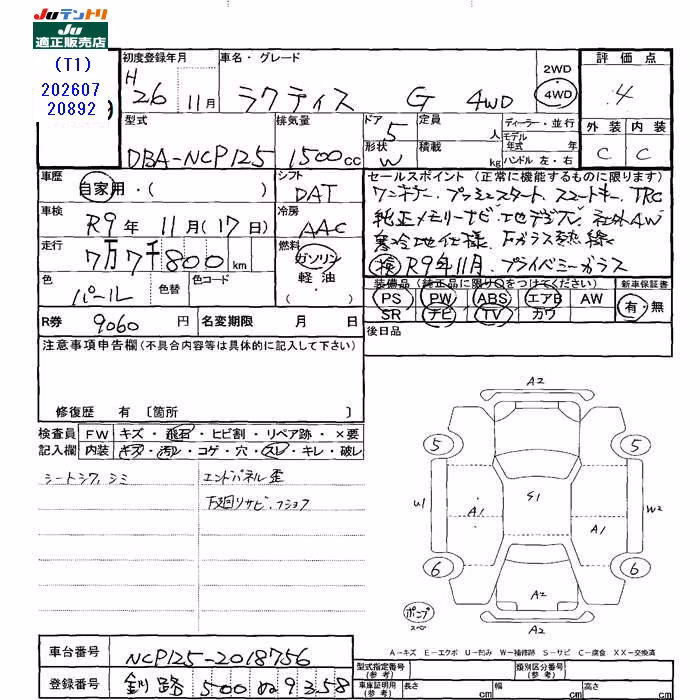 Juテントリ
Ju
適正販売店
(T1)
202607
20892
初度登録年月 車名・グレード 2WD 4WD 評価点
H 26 11月 ラクティス G 4WD 4
型式 排気量 ドア 定員 人 ディーラー・並行 外装 内装
DBA-NCP125 1500cc 5 形状 W 積載 kg モデル年式 年式 ハンドル 左・右 C C
車歴 シフト セールスポイント(正常に機能するものに限ります)
自家用・( ) DAT ワンオーナー、プッシュスタート、スマートキー、TRC
車検 冷房 純正メモリーナビ・地デジTV、社外AW
R9年 11月(17日) AAC 寒冷地仕様、Fガラス熱線
走行 燃料 検 R9年11月、プライバシーガラス
7万7千800km ガソリン 軽油 ・
色 パール 色替 色コード 装備品(純正品に限り○をつけてください) 新車保証書
PS PW ABS エアB AW 有・無
R券 9060円 名変期限 月 日 SR ナビ TV カワ
注意事項申告欄(不具合内容等は具体的に記入して下さい) 後日品
修復歴 有 〔箇所 〕
検査員 FW キズ・飛石・ヒビ割・リペア跡・×要
記入欄 内装 キズ・汚レ・コゲ・穴・スレ・キレ・破レ
シートシワ、シミ エンドパネル歪
下廻りサビ、フショク
A2
5 5
U1 A1 S1 A1 W2
6 6
A2
ポンプ
スペ
A2
A-キズ E-エクボ U-凹み W-補修跡 S-サビ C-腐食 XX-交換済
車台番号 NCP125-2018756 型式指定番号(参考) 類別区分番号(参考)
登録番号 釧路 500 ぬ 9358 車庫証明用(参考) 長さ cm 幅 cm 高さ cm